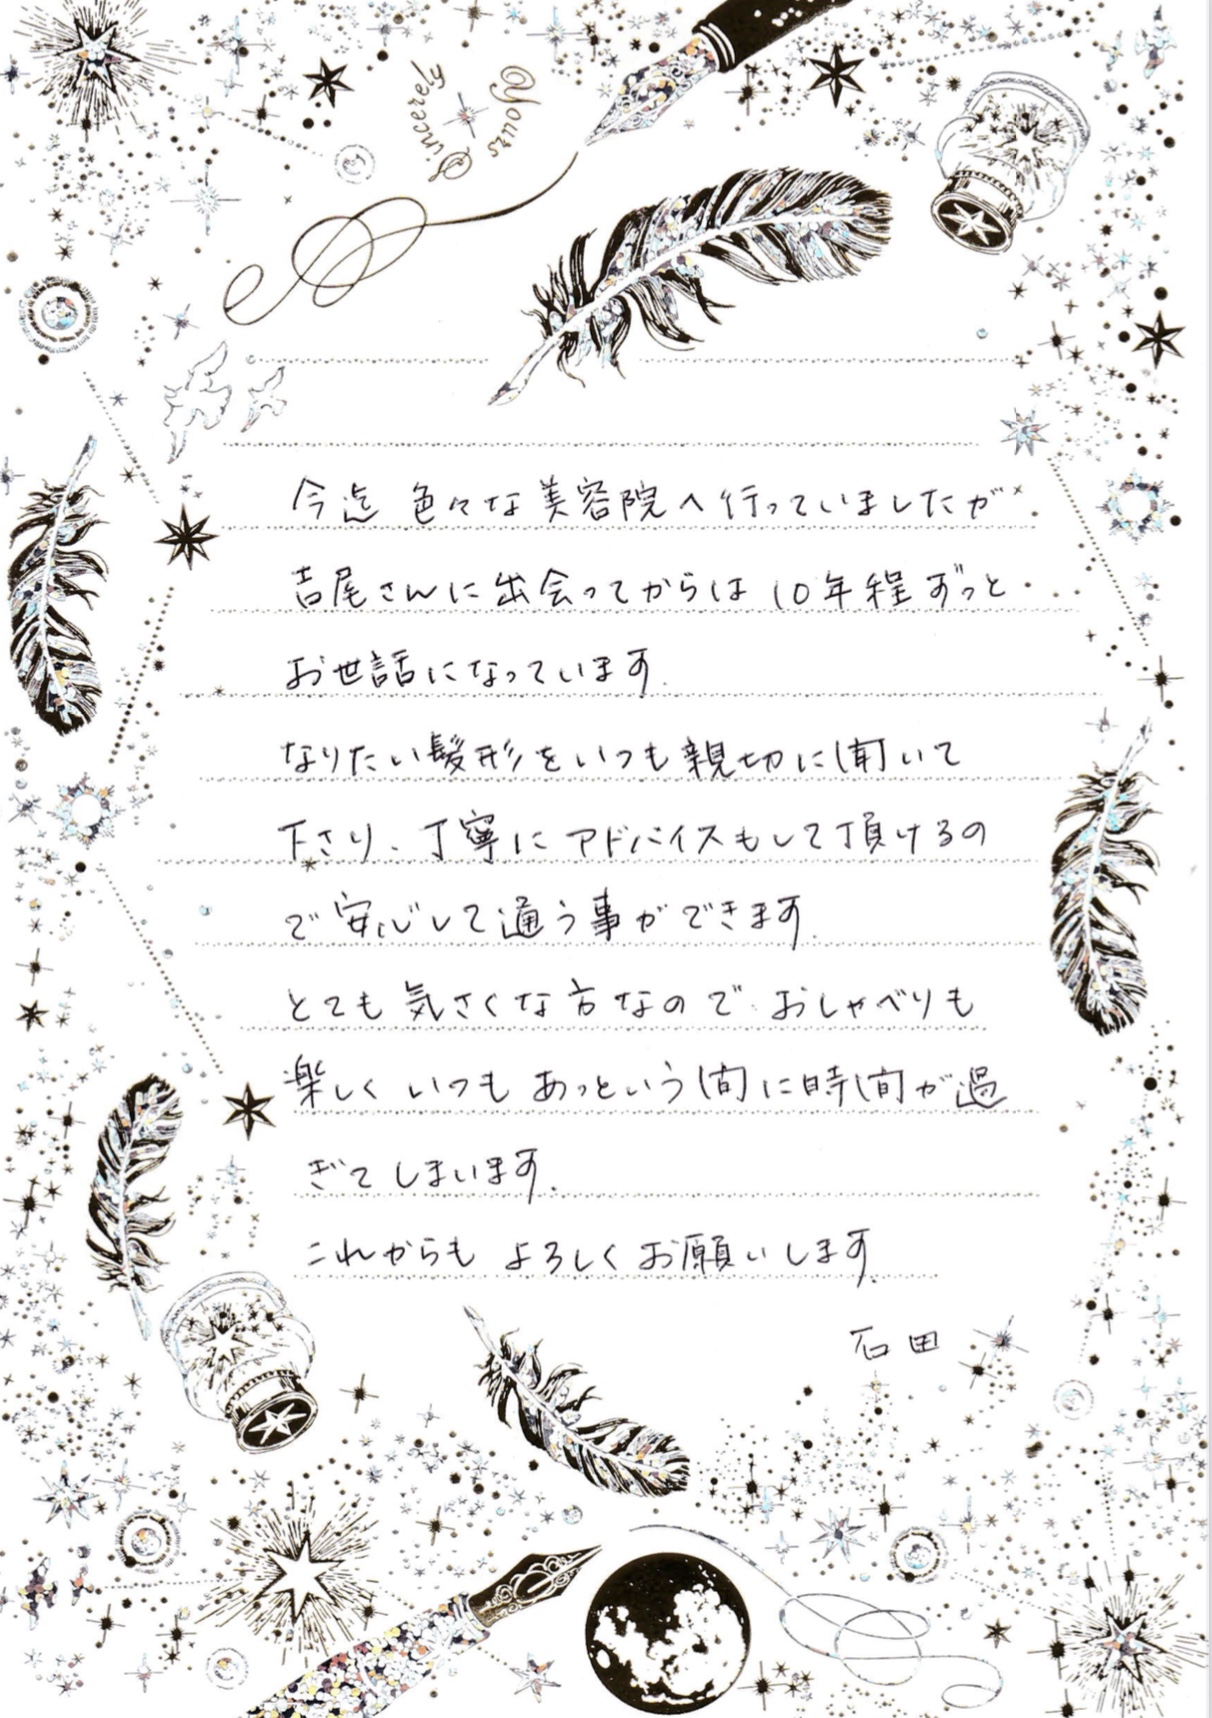 Yours
Sincerely
今迄 色々な美容院へ行っていましたが
吉尾さんに出会ってからは10年程ずっと
お世話になっています.
なりたい髪形をいつも親切に聞いて
下さり、丁寧にアドバイスもして頂けるの
で安心して通う事ができます.
とても気さくな方なので おしゃべりも
楽しく いつも あっという間に時間が過
ぎてしまいます.
これからも よろしくお願いします.
石田